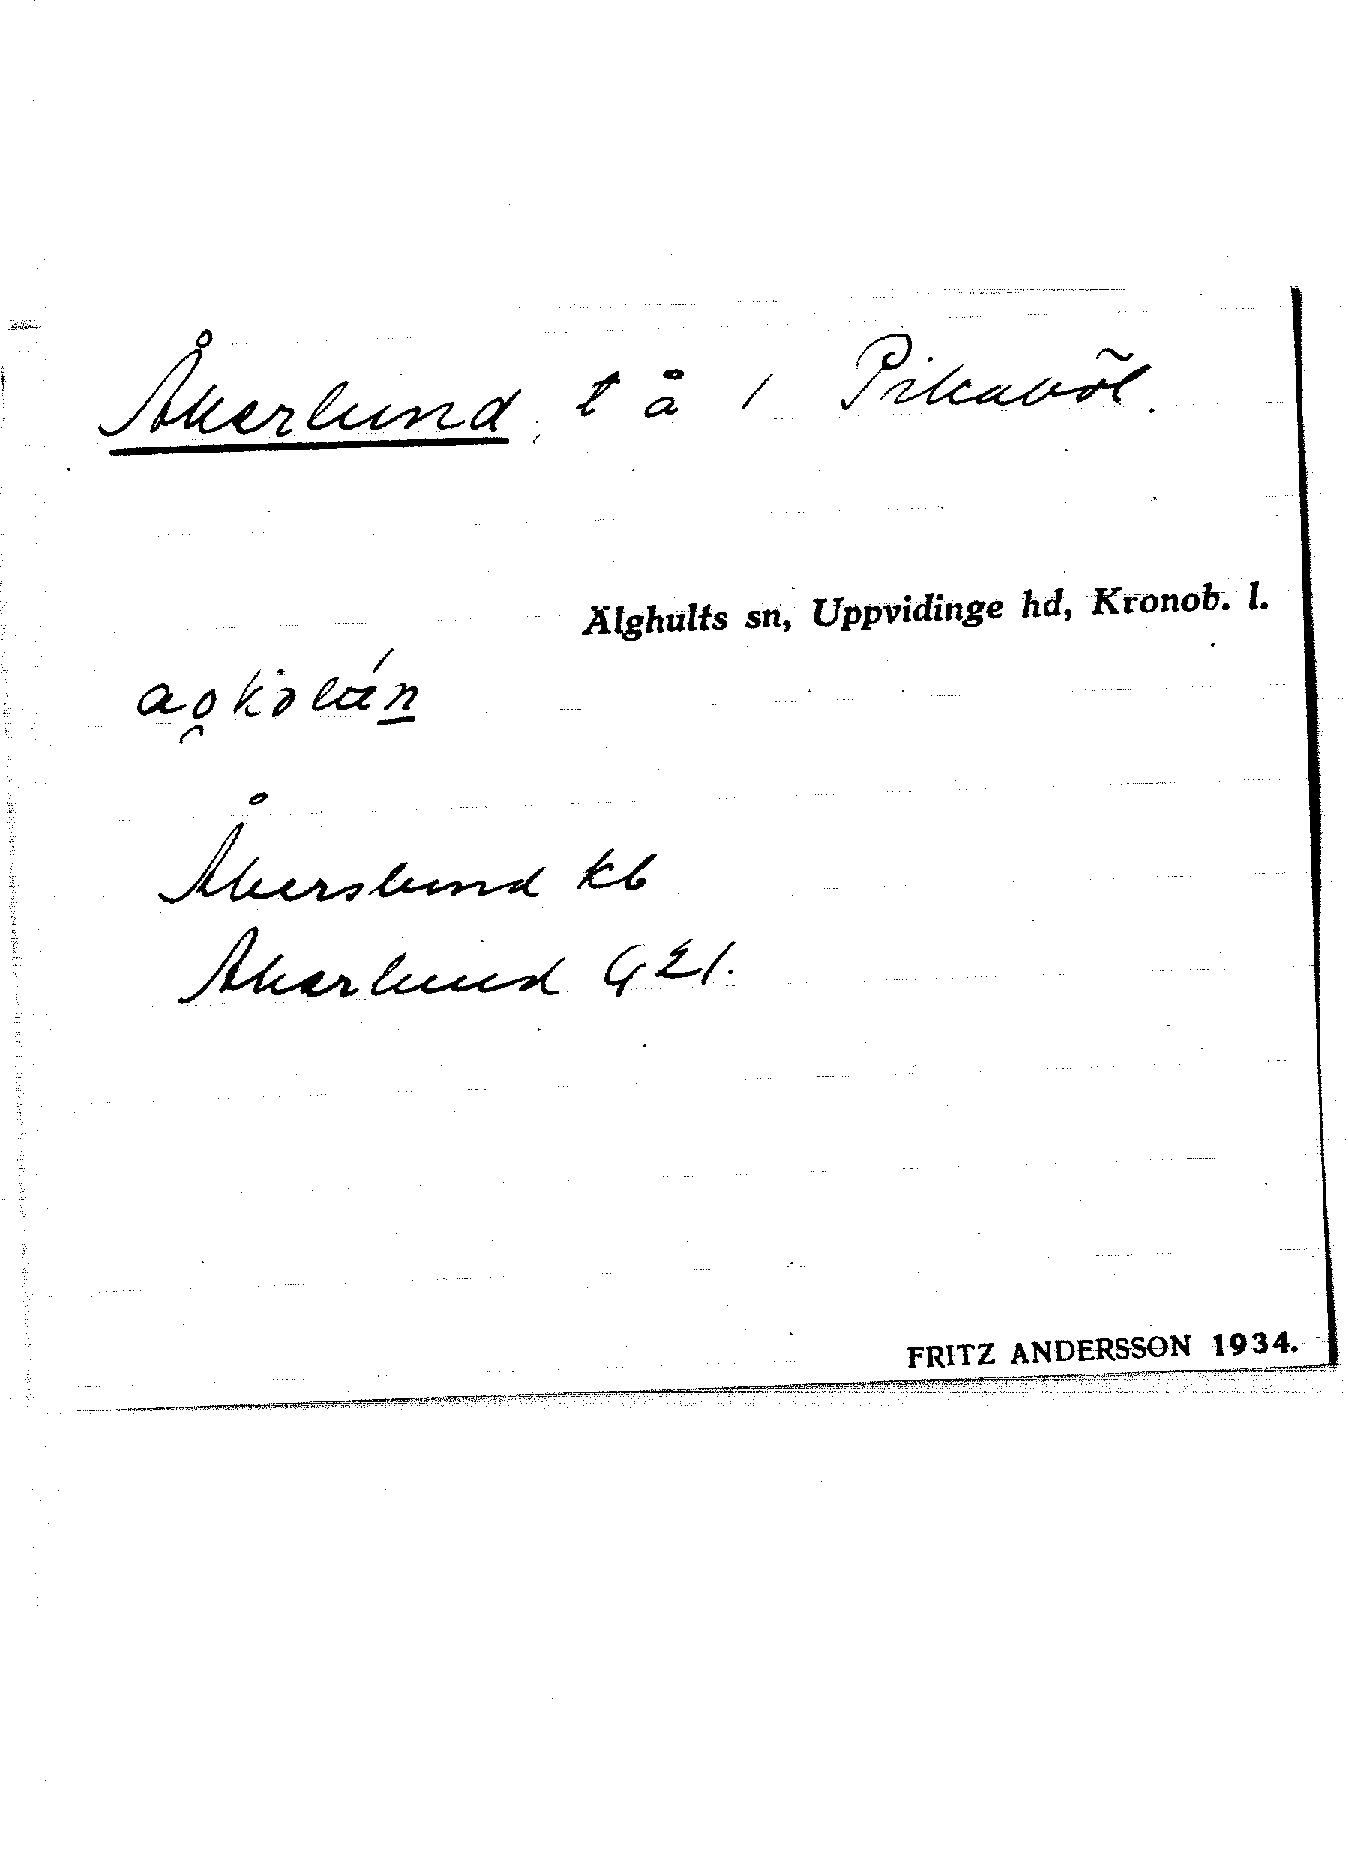 Åkerlund, t å i Pikaböl.
Älghults sn, Uppvidinge hd, Kronob. l.
Åkerslund kb
Åkerlund GEI.
FRITZ ANDERSSON 1934.